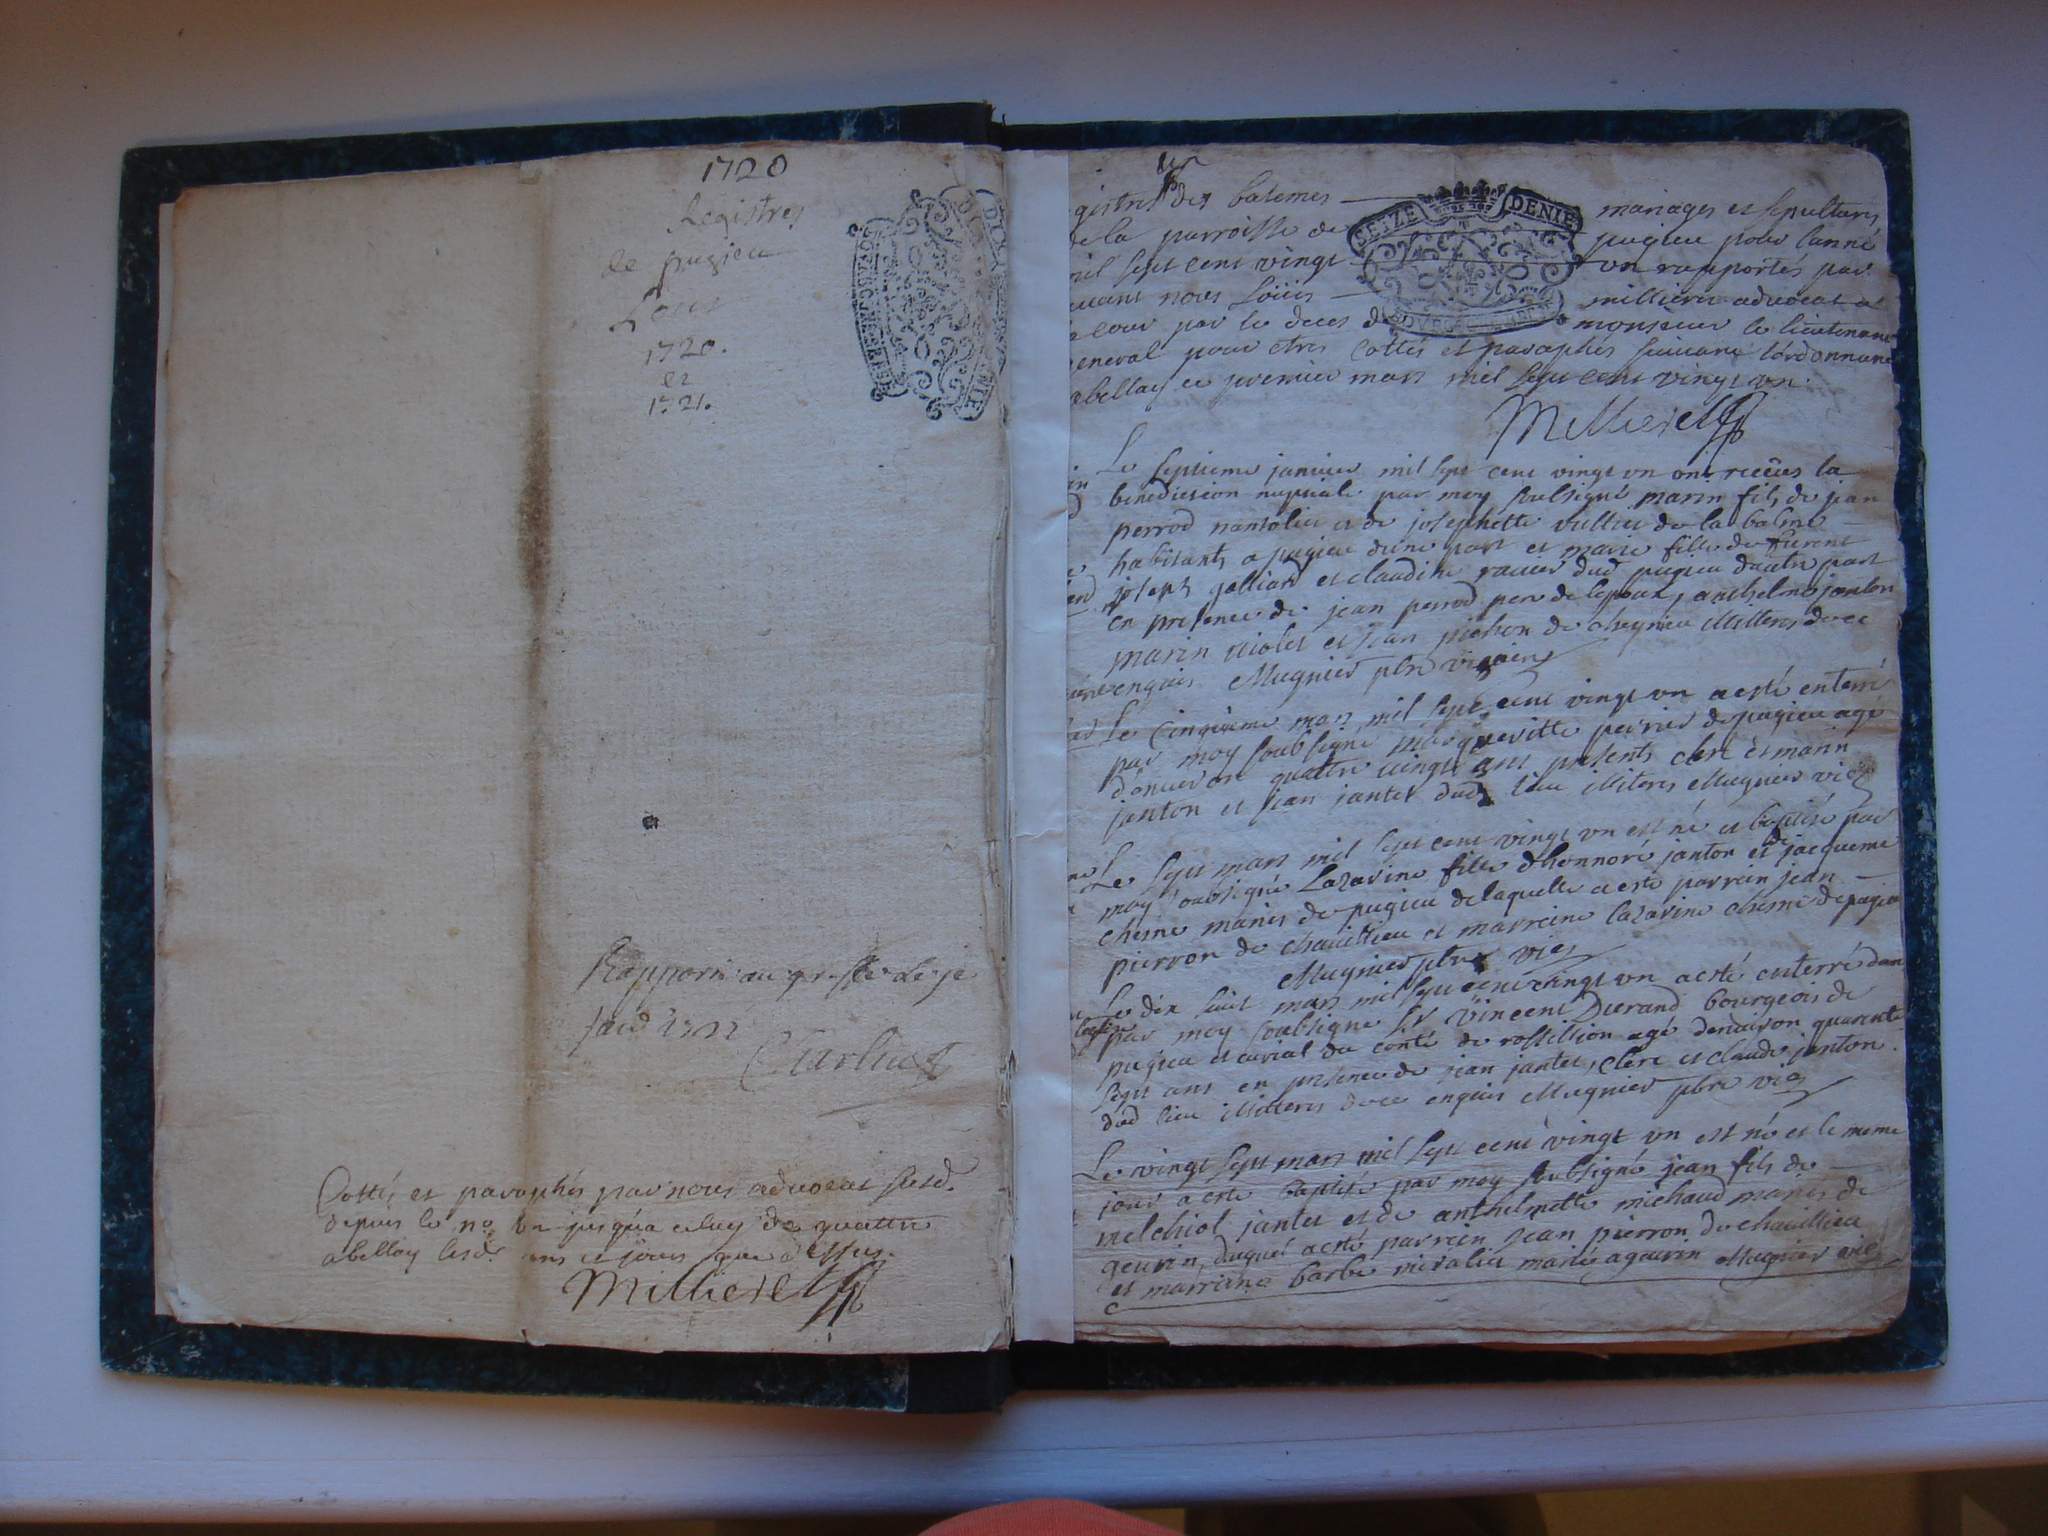 1720
Registres
de pugieu
Pour
1720.
et
1721.
Rapporté au greffe le
Cottés et paraphés par nous advocat susd.
depuis le no. un jusqua celuy de quattre
abellay lesd. ans et jours que dessus.
Millieret
un
gistres des batemes mariages et sepultures
de la parroisse de pugieu pour lanné
mil sept cent vingt un rapportés par
devant nous Loüis millieret advocat a
la cour par le deces de monsieur le lieutenant
general pour etres Cottés et paraphés suivant lordonnance
abellay ce premier mars mil sept cent vingt un.
SEIZE DENIE
Millieret
Le septieme janvier mil sept cent vingt un ont reçeus la
benediction nuptiale par moy soubsigné marin fils de jean
perrod nantolier et de josephette vullier de la balme
habitants a pugieu dune part et marie fille de furent
joseph gallian et claudine ravier dud pugieu dautre part
en presence de jean perrod pere de lepoux, anthelme janton
marin violet et jean pichon de cheynieu illiteres de ce
enquis Mugnier pbre vicaire
Le Cinquieme mars mil sept cent vingt un a esté enterré
par moy soubsigné margueritte perrier de pugieu agé
d'enuiron quattre vingt ans presents clere et marin
janton et jean jantet dud lieu illiteres Mugnier vic
Le sept mars mil sept cent vingt un est né et baptisé par
moy soubsigné Lazarine fille dhonnoré janton et de jacqueme
chesne mariés de pugieu de laquelle a esté parrein jean
pierron de chavillieu et marreine lazarine chesne de pugieu
Mugnier pbre vic
Le dix huit mars mil sept cent vingt un a esté enterré dans
leglise
par moy soubsigné Sr vincent Durand bourgeois de
pugieu et curial du conté de rossillion agé denuiron quarente
sept ans en presence de jean jantet, clere et claude janton
dud lieu illiteres de ce enquis Mugnier pbre vic
Le vingt sept mars mil sept cent vingt un est né et le meme
jour a esté baptisé par moy soubsigné jean fils de
melchiol jantet et de anthelmette michaud mariés de
geurin, duquel a esté parrein jean pierron de chavillieu
et marreine barbe miralier mariée a geurin Mugnier vic